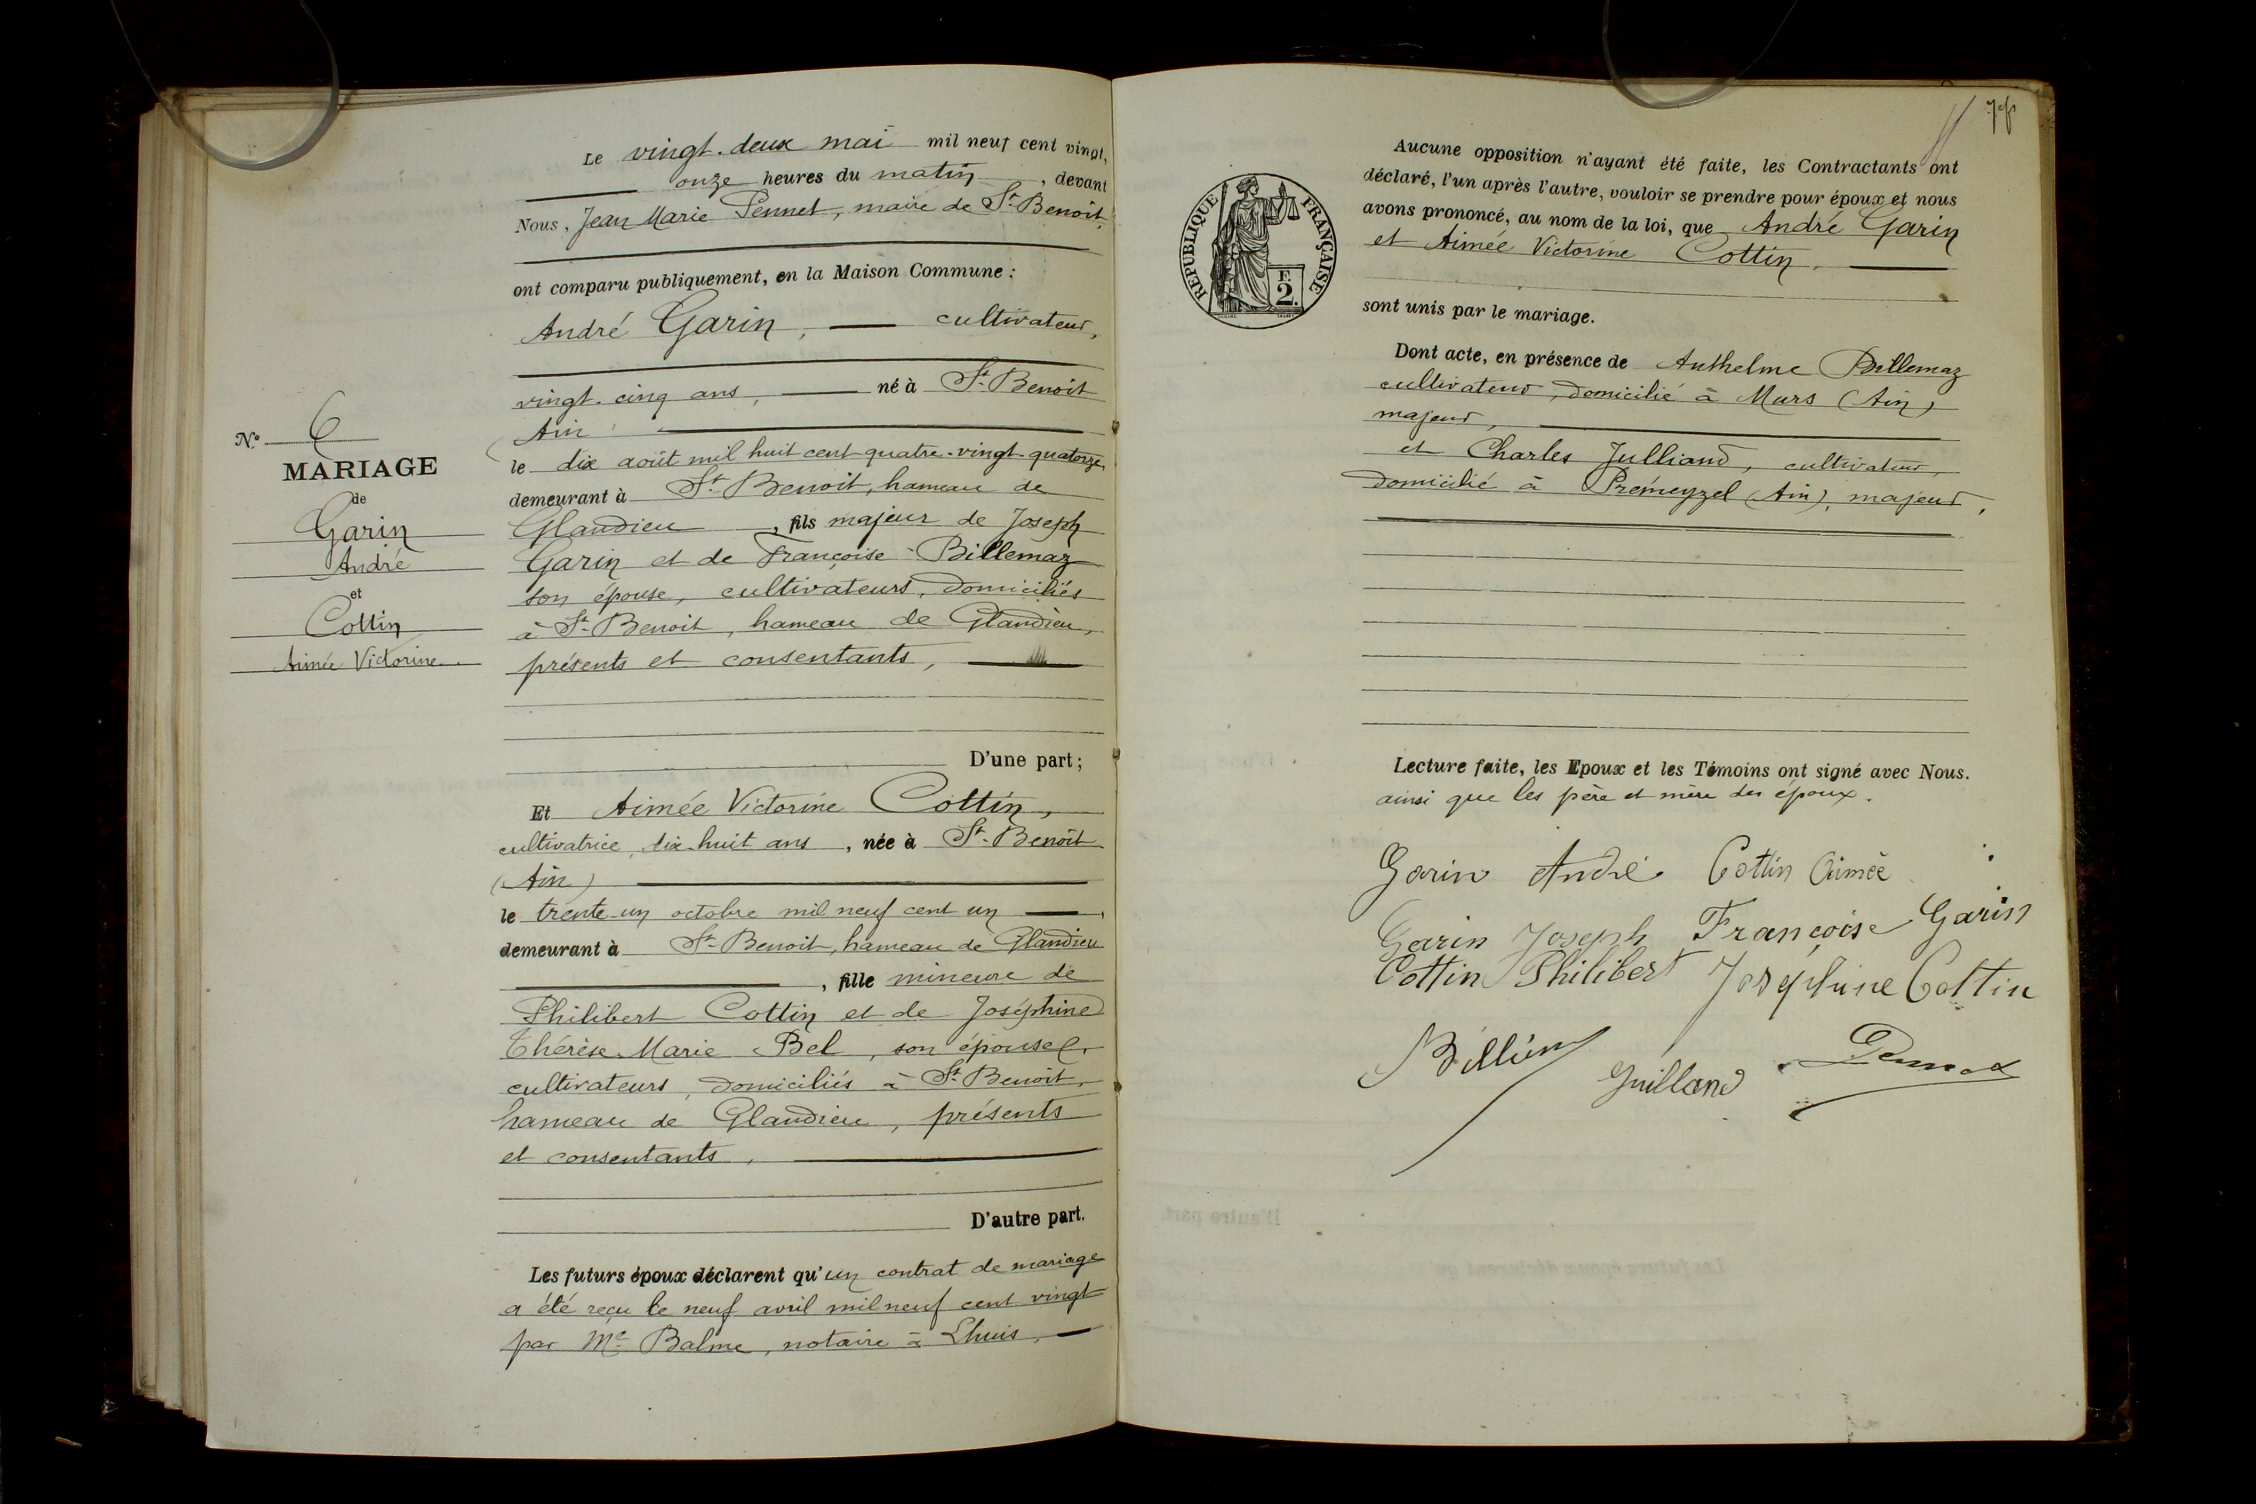 Le vingt-deux mai mil neuf cent vingt,
onze heures du matin, devant
Nous, Jean Marie Pennet, maire de St-Benoit,
ont comparu publiquement, en la Maison Commune :
André Garin, cultivateur,
vingt-cinq ans, né à St-Benoit
(Ain)
le dix août mil huit cent quatre-vingt-quatorze,
demeurant à St-Benoit, hameau de
Glandieu, fils majeur de Joseph
Garin et de Françoise Billemaz
son épouse, cultivateurs, domiciliés
à St-Benoit, hameau de Glandieu,
présents et consentants,
D'une part ;
N° 6
MARIAGE
de
Garin
André
et
Cottin
Aimée Victorine
Et Aimée Victorine Cottin,
cultivatrice, dix-huit ans, née à St-Benoit
(Ain)
le trente-un octobre mil neuf cent un,
demeurant à St-Benoit, hameau de Glandieu
, fille mineure de
Philibert Cottin et de Joséphine
Thérèse Marie Bel, son épouse,
cultivateurs, domiciliés à St-Benoit,
hameau de Glandieu, présents
et consentants,
D'autre part.
Les futurs époux déclarent qu'un contrat de mariage
a été reçu le neuf avril mil neuf cent vingt
par Me Balme, notaire à Lhuis,
RÉPUBLIQUE FRANÇAISE
F.
2.
Aucune opposition n'ayant été faite, les Contractants ont
déclaré, l'un après l'autre, vouloir se prendre pour époux et nous
avons prononcé, au nom de la loi, que André Garin
et Aimée Victorine Cottin,
sont unis par le mariage.
Dont acte, en présence de Anthelme Billemaz
cultivateur, domicilié à Murs (Ain)
majeur,
et Charles Julliand, cultivateur,
domicilié à Prémeyzel (Ain), majeur,
Lecture faite, les Epoux et les Témoins ont signé avec Nous.
ainsi que les père et mère des époux.
Garin André Cottin Aimée
Garin Joseph Françoise Garin
Cottin Philibert Joséphine Cottin
Juilland Pennet